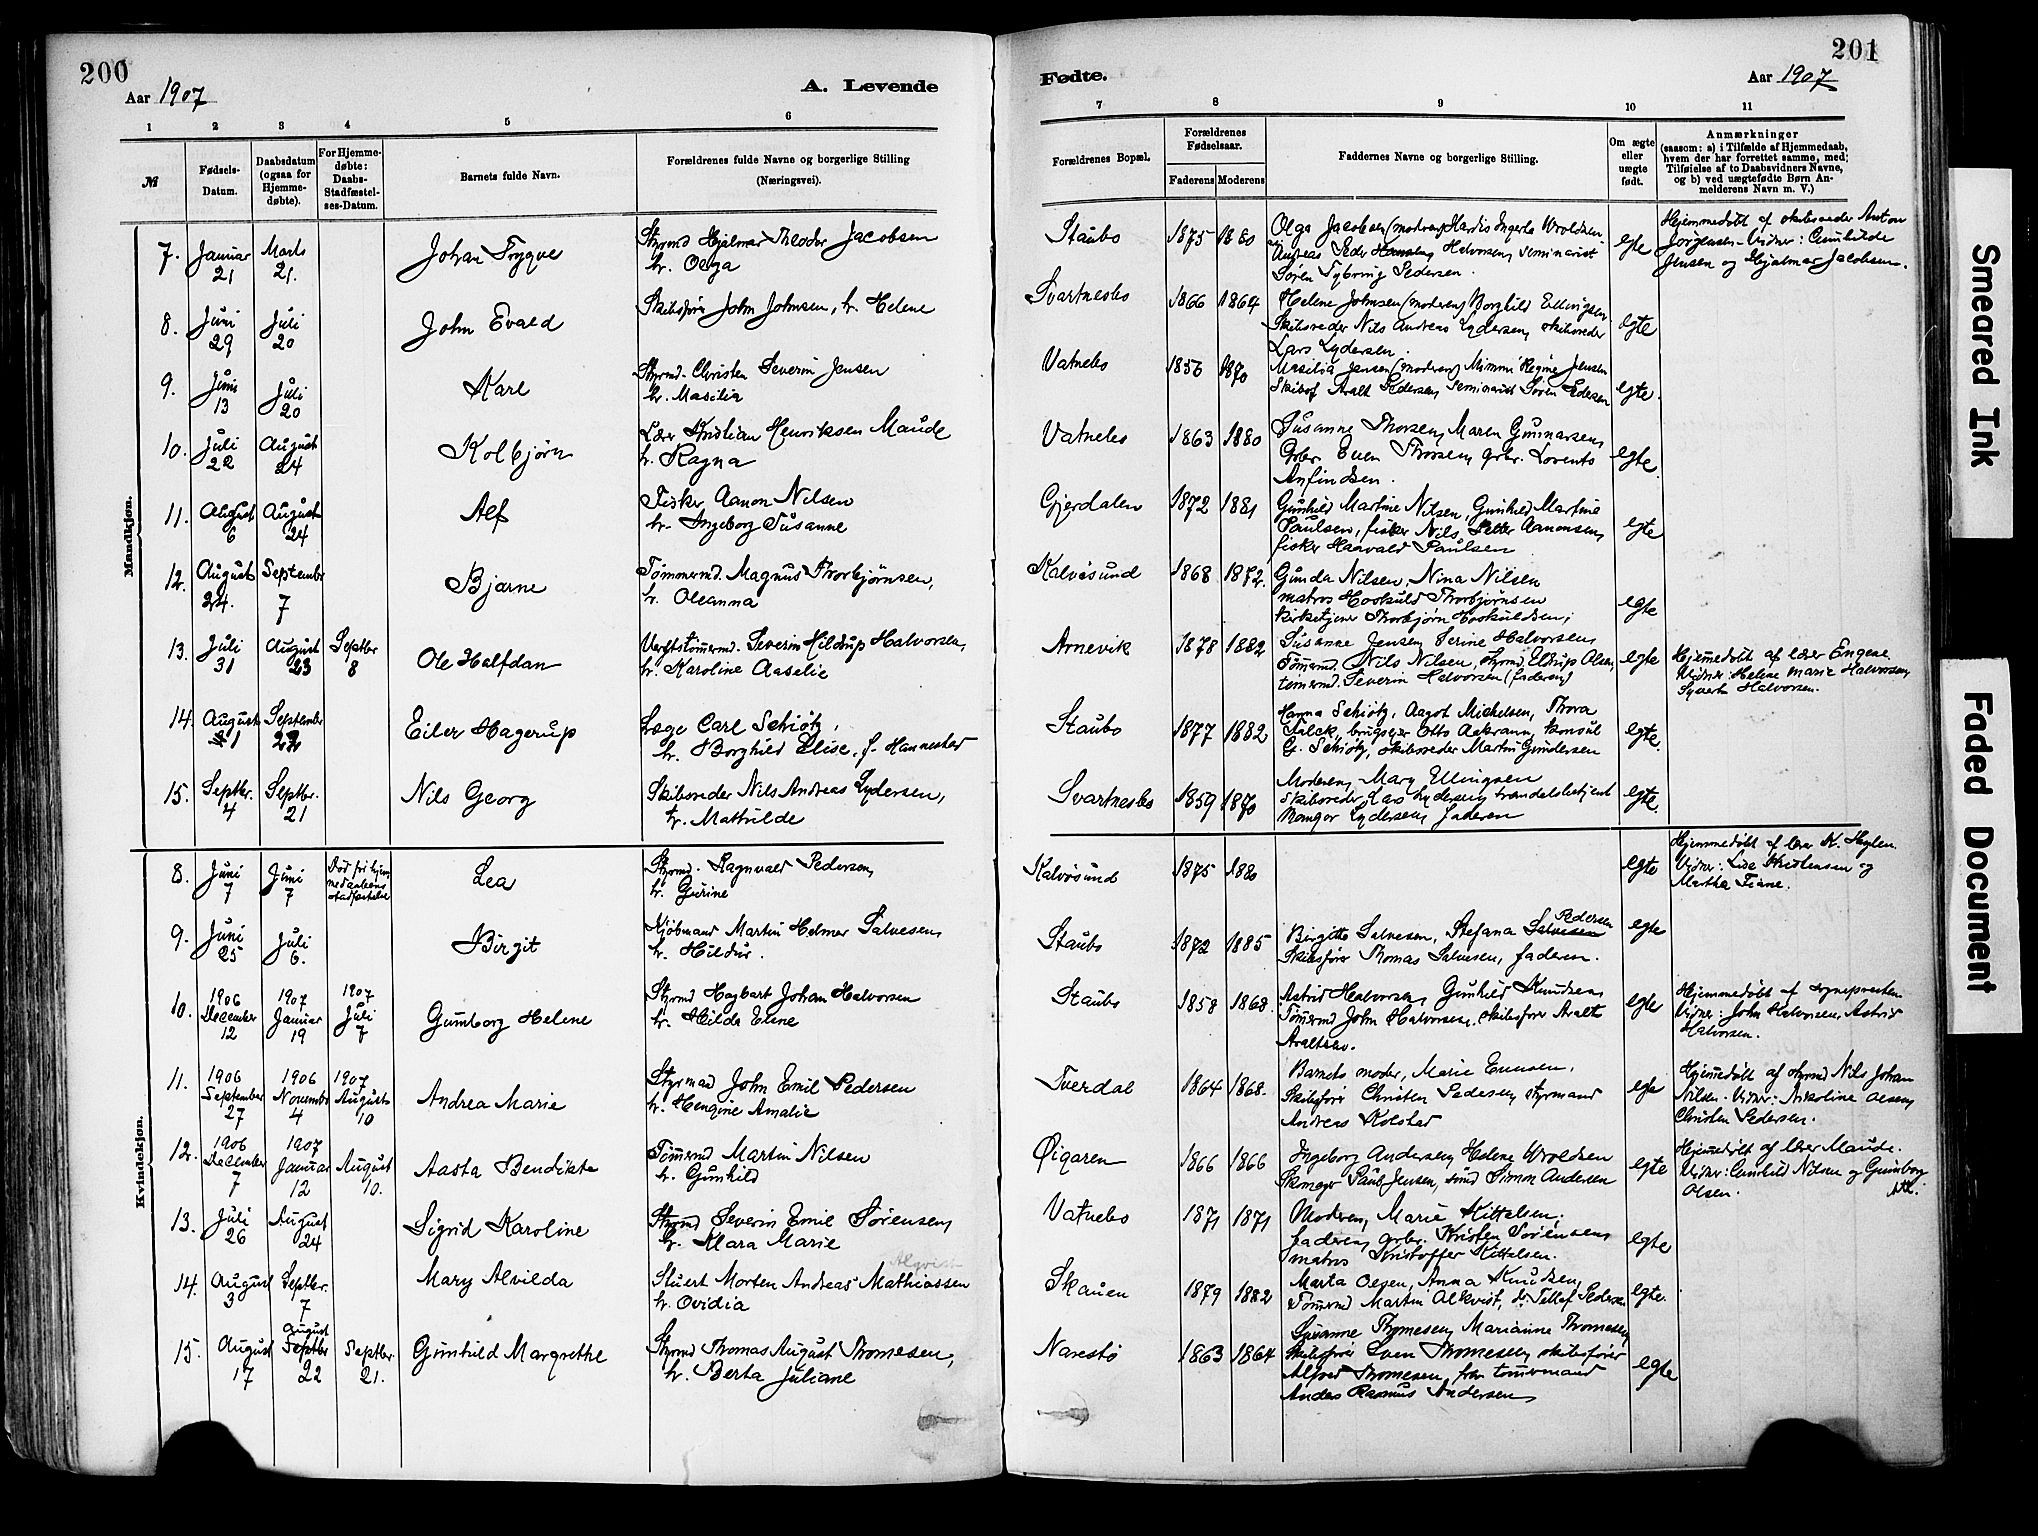 200
Aar 1907
A. Levende
1 2 3 4 5 6
№ Fødsels-Datum. Daabsdatum (ogsaa for Hjemme-døbte). For Hjemme-døbte: Daabs-Stadfæstel-ses-Datum. Barnets fulde Navn. Forældrenes fulde Navne og borgerlige Stilling (Næringsvei).
Mandkjøn.
7. Januar 21 Marts 21. Johan Trygve Styrmd Hjalmar Theodor Jacobsen
h. Olga
8. Juni 29 Juli 20 John Evald Skibsfører John Johnsen, h. Helene
9. Juni 13 Juli 20 Karl Styrmd. Christen Severin Jensen
h. Masilia
10. Juli 22 August 24 Kolbjørn Lærer Kristian Henriksen Maude
h. Ragna
11. August 6 August 24 Alf Fisker Aanon Nilsen
h. Ingeborg Susanne
12. August 24. September 7 Bjarne Tømmermd. Magnus Thorbjørnsen,
h. Oleanna
13. Juli 31 August 23 Septbr 8 Ole Halfdan Værftstømermd. Severin Hildrup Halvorsen,
h. Karoline Aaselie
14. August 1 September 22 Eiler Hagerup Læge Carl Schiøtz,
h. Borghild Elise, f. Hannestad
15. Septbr. 4 Septbr. 21 Nils Georg Skibsreder Nils Andreas Lydersen,
h. Mathilde
Kvindekjøn.
8. Juni 7 Juni 7 Død før hjem-
medaabens
stadfæstelse Lea Styrmd. Ragnvald Pedersen,
h. Gurine
9. Juni 25 Juli 6. Birgit Kjøbmand Martin Helmer Salvesen,
h. Hildur.
10. 1906 December 12 1907 Januar 19 1907 Juli 7 Gunborg Helene Styrmd Hagbart Johan Halvorsen
h. Hilda Elene
11. 1906 September 27 1906 Novembr 4 1907 August 10 Andrea Marie Styrmand John Emil Pedersen
h. Hengine Amalie
12. 1906 December 7 1907 Januar 12 August 10. Aasta Bendikte Tømermd Martin Nilsen
h. Gunhild
13. Juli 26 August 24 Sigrid Karoline Styrmd Severin Emil Sørensen,
h. Klara Marie
Alqvist
14. August 3 Septbr. 7 Mary Alvilda Stuert Morten Andreas Mathiassen
h. Ovidia
15. August 17 August Septbr 22 Septbr. 21. Gunhild Margrethe Styrmd Thomas August Thomesen,
h. Berta Juliane
201
Fødte.
Aar 1907
7 8 9 10 11
Forældrenes Bopæl. Forældrenes Fødselsaar. Faderens Moderens Faddernes Navne og borgerlige Stilling. Om ægte eller uægte født. Anmærkninger
(saasom: a) i Tilfælde af Hjemmedaab,
hvem der har forrettet samme, med
Tilføielse af to Daabsvidners Navne,
og b) ved uægtefødte Børn An-
melderens Navn m. V.)
Staubo 1875 1880 Olga Jacobsen (moderen) Hardis Ingerta Wroldsen
Andreas Peder Hansen Halvorsen, seminarist
Søren Tyboring Pedersen. egte Hjemmedøbt af skibsreder Anton
Jørgensen – Vidner: Gunhilde
Jensen og Hjalmar Jacobsen.
Svartnesbo 1866 1864 Helene Johnsen (moderen) Borghild Ellingsen
Skibsreder Nils Andreas Lydersen, skibsreder
Lars Lydersen. egte
Vatnebo 1856 1870 Masilia Jensen (moderen) Mimmi Regine Jensen
Skibsf. Aralt Pedersen, seminarist Søren Pedersen egte.
Vatnebo 1863 1880 Susanne Thorsen, Maren Gunnarsen,
Grbr. Even Thorsen, grbr. Lorents
Anfindsen. egte.
Gjerdalen 1872 1881 Gunhild Martine Nilsen, Gunhild Martine
Paulsen, fisker Nils Petter Aanonsen,
fisker Haavald Paulsen egte
Kalvøsund 1868 1872. Gunda Nilsen, Nina Nilsen
matros Hoskuld Thorbjørnsen
kirketjener Thorbjørn Hoskuldsen; egte
Arnevik 1878 1882 Susanne Jensen, Serine Halvorsen,
Tømermd. Nils Nilsen, Styrmd. Eldrup Olsen,
tømermd. Severin Halvorsen (faderen) egte Hjemmedøbt af lærer Engene
Vidner: Helene Marie Halvorsen,
Syvert Halvorsen.
Staubo 1877 1882 Hanna Schiøtz, Aagot Michelsen, Thora
Falck, brugseier Otto Aakrann, konsul
G. Schiøtz, skibsreder Martin Gundersen egte.
Svartnesbo 1859 1870 Moderen, Mary Ellingsen
Skibsreder Lars Lydersen, handelsbetjent
Lydersen, faderen egte.
Kalvøsund 1875 1880 egte Hjemmedøbt af lærer K. Heglen
Vidner: Lise Kristensen og
Martha Fiane.
Staubo 1872 1885 Birgitte Salvesen, Stefana Salvesen Pedersen
Skibsfører Thomas Salvesen, faderen. egte
Staubo 1858 1868. Astrid Halvorsen, Gunhild Knudsen,
Tømermd John Halvorsen, skibsfører Aralt
Araltsen. egte Hjemmedøbt af sognepresten
Vidner: John Halvorsen, Astrid
Halvorsen.
Tverdal 1864 1868. Barnets moder, Marie Evensen,
Skibsfører Christen Pedersen, styrmand
Andreas Kolstad egte Hjemmedøbt af styrmd Nils Johan
Nilsen. Vidner: Nikoline Olsen,
Christen Pedersen.
Øigaren 1866 1866 Ingeborg Andersen, Helene Wroldsen
Skomager Paul Jensen, smed Simon Andersen egte Hjemmedøbt af lærer Maude.
Vidner: Gunhild Nilsen og Gunborg
Olsen.
Vatnebo 1871 1871 Moderen, Marie Kittelsen,
faderen, grbr. Kristen Sørensen,
matros Kristoffer Kittelsen. egte
Skauen 1879 1882 Marta Olsen, Anna Knudsen,
Tømermd Martin Alkvist, d: Tellef Pedersen egte.
Narestø 1863 1864 Susanne Thomesen, Marianne Thomesen,
Skibsfører Sven Thomesen, skibsfører
Alfred Thomesen, frøn tømermand
Anders Rasmus Andersen, egte
Smeared Ink
Faded Document